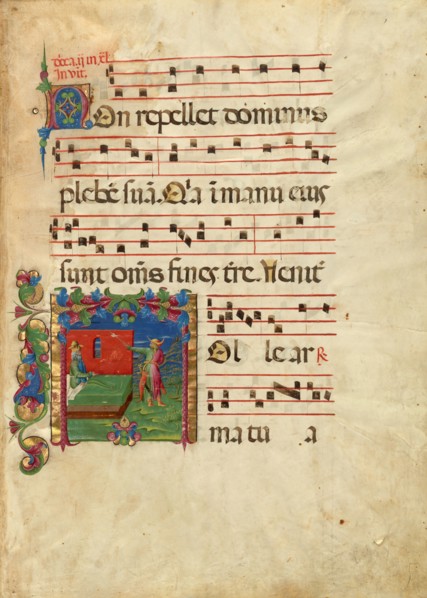 On repellet dominus
plebē suā. Q̄a ī manu eius
sunt om̄s fines tr̄e. Uenit
Ol le ar ℟
ma tu a